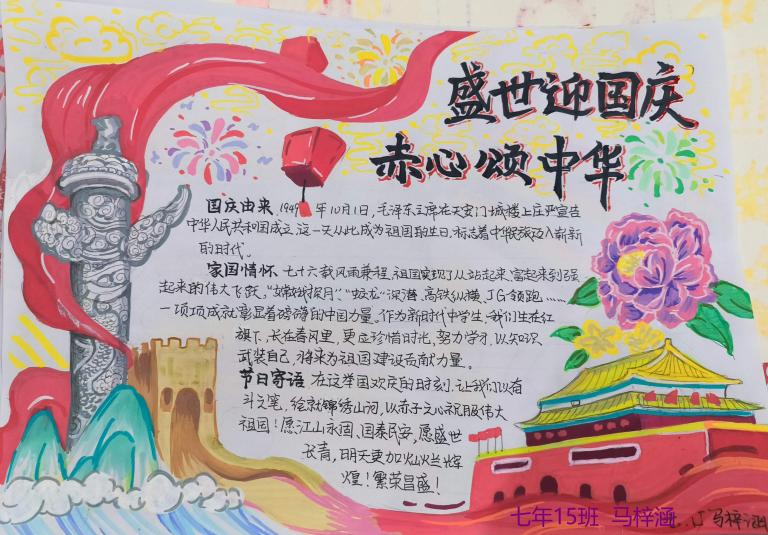 盛世迎国庆
赤心颂中华
国庆由来 1949年10月1日,毛泽东主席在天安门城楼上庄严宣告
中华人民共和国成立 这一天从此成为祖国的生日,标志着中华民族迈入崭新
的时代.
家国情怀 七十六载风雨兼程,祖国实现了从站起来、富起来到强
起来的伟大飞跃,"嫦娥探月"、"蛟龙"深潜,高铁纵横、JG领跑……
一项项成就彰显着磅礴的中国力量。作为新时代中学生,我们生在红
旗下,长在春风里,更应珍惜时光,努力学习,以知识
武装自己,将来为祖国建设贡献力量。
节日寄语 在这举国欢庆的时刻,让我们以奋
斗之笔,绘就锦绣山河,以赤子之心祝服伟大
祖国!愿江山永固、国泰民安,愿盛世
长青,明天更加灿烂辉
煌!繁荣昌盛!
七年15班 马梓涵
马梓涵